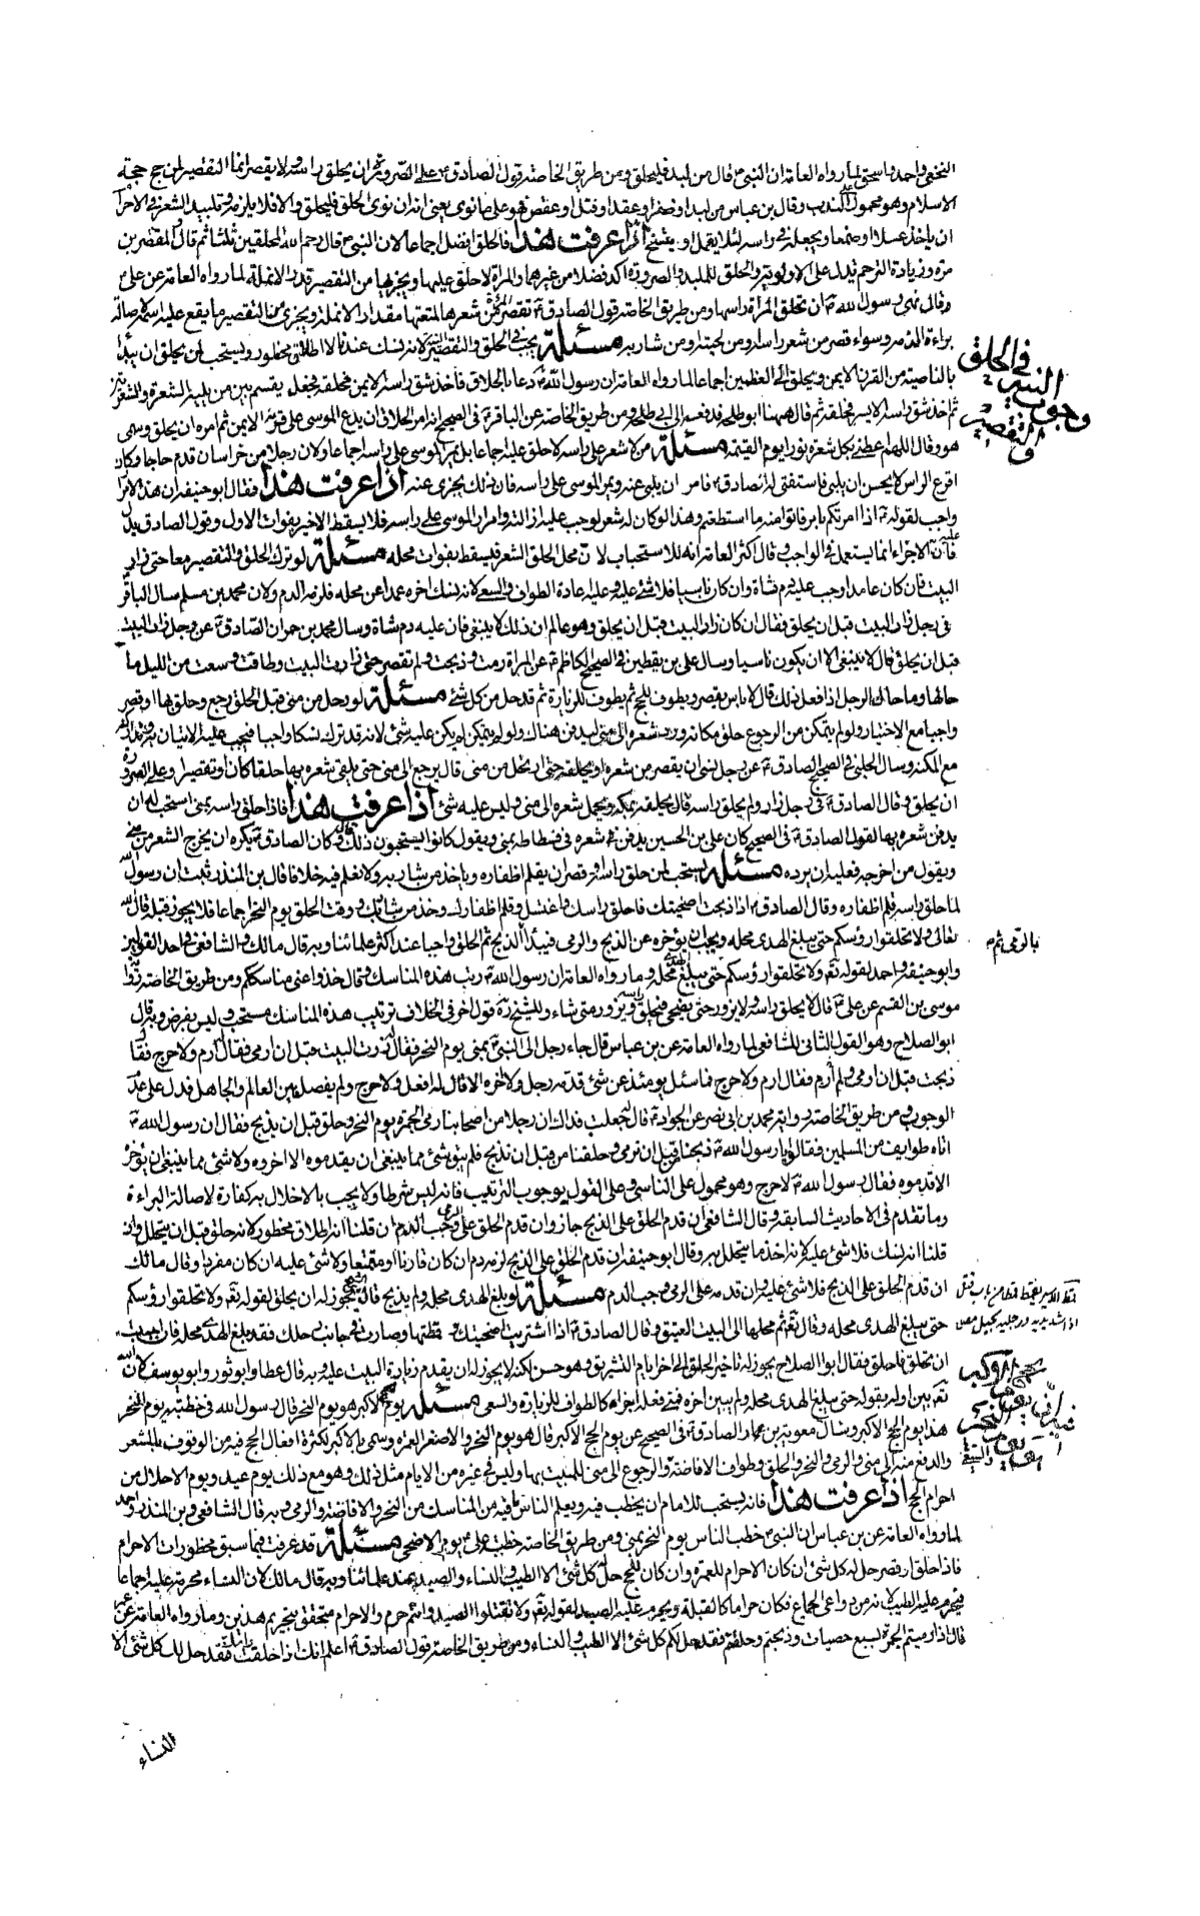 النخعي واحمد واسحق لما رواه العامة ان النبي ص قال من لبد فليحلق ومن طريق الخاصة قول الصادق ع على الصرورة ان يحلق راسه ولا يقصر انما التقصير لمن حج حجة
الاسلام وهو محمول على الندب وقال بن عباس من لبد او ضفر او عقد او فتل او عقص فهو على ما نوى يعني انه ان نوى الحلق فليحلق والا فلا يلزمه وتلبيد الشعر في الاحرام
ان ياخذ عسلا او صمغا ويجعله في راسه لئلا يقمل او يتسخ اذا عرفت هذا فالحلق افضل اجماعا لان النبي ص قال رحم الله المحلقين ثلثا ثم قال والمقصرين
مرة وزيادة الترحم تدل على الاولوية والحلق للملبد والصرورة اكد فضلا من غيرهما والمراة لا حلق عليها ويجزيها من التقصير قدر الانملة لما رواه العامة عن علي ع
وقال نهى رسول الله ص ان تحلق المراة راسها ومن طريق الخاصة قول الصادق ع تقصر المراة من شعرها لمتعتها مقدار الانملة ويجزي من التقصير ما يقع عليه اسمه لاصالة
براءة الذمة وسواء قصر من شعر راسه او من لحيته او من شاربه مسئلة يجب في الحلق والتقصير النية لانه نسك عندنا لا اطلاق محظور ويستحب لمن يحلق ان يبدا
بالناصية من القرن الايمن ويحلق الى العظمين اجماعا لما رواه العامة ان رسول الله ص دعا بالحلاق فاخذ شق راسه الايمن فحلقه فجعل يقسم بين من يليه الشعرة والشعرتين
ثم اخذ شق راسه الايسر فحلقه ثم قال ههنا ابو طلحة فدفعه الى ابي طلحة ومن طريق الخاصة عن الباقر ع في الصحيح انه امر الحلاق ان يدع الموسى على قرنه الايمن ثم امره ان يحلق وسمى
هو وقال اللهم اعطني بكل شعرة نورا يوم القيمة مسئلة من لا شعر على راسه لا حلق عليه اجماعا بل يمر الموسى على راسه اجماعا ولان رجلا من خراسان قدم حاجا وكان
اقرع الراس لا يحسن ان يلبي فاستفتى له الصادق ع فامر ان يلبى عنه ويمر الموسى على راسه فان ذلك يجزي عنه اذا عرفت هذا فقال ابو حنيفة ان هذا الامرار
واجب لقوله ع اذا امرتكم بامر فاتوا منه ما استطعتم وهذا لو كان له شعر لوجب عليه ازالته وامرار الموسى على راسه فلا يسقط الاخير بفوات الاول وقول الصادق يدل
عليه فان الاجزاء انما يستعمل في الواجب وقال اكثر العامة انه للاستحباب لان محل الحلق الشعر فيسقط بفوات محله مسئلة لو ترك الحلق والتقصير معا حتى زار
البيت فان كان عامدا وجب عليه دم شاة وان كان ناسيا فلا شئ عليه وعليه اعادة الطواف والسعي لانه نسك اخره عمدا عن محله فلزمه الدم ولان محمد بن مسلم سال الباقر
في رجل زار البيت قبل ان يحلق فقال ان كان زار البيت قبل ان يحلق وهو عالم ان ذلك لا ينبغي فان عليه دم شاة وسال محمد بن حمران الصادق ع عن رجل زار البيت
قبل ان يحلق قال لا ينبغي الا ان يكون ناسيا وسال علي بن يقطين في الصحيح الكاظم ع عن المراة رمت وذبحت ولم تقصر حتى زارت البيت وطافت وسعت من الليل ما
حالها وما حال الرجل اذا فعل ذلك قال لا باس يقصر ويطوف للحج ثم يطوف للزيارة ثم قد حل من كل شئ مسئلة لو رحل من منى قبل الحلق رجع وحلق بها او قصر
واجبا مع الاختيار ولو لم يتمكن من الرجوع حلق مكانه ورد شعره الى منى ليدفن هناك ولو لم يتمكن لم يكن عليه شئ لانه قد ترك نسكا واجبا فيجب عليه الاتيان به وتداركه
مع المكنة وسال الحلبي في الصحيح الصادق ع عن رجل نسي ان يقصر من شعره او يحلقه حتى ارتحل من منى قال يرجع الى منى حتى يلقي شعره بها حلقا كان او تقصيرا وعلى الصرورة
ان يحلق وقال الصادق ع في رجل زار ولم يحلق راسه قال يحلقه بمكة ويحمل شعره الى منى وليس عليه شئ اذا عرفت هذا فاذا حلق راسه بمنى استحب له ان
يدفن شعره بها لقول الصادق ع في الصحيح كان علي بن الحسين يدفن شعره في فسطاطه بمنى ويقول كانوا يستحبون ذلك قال وكان الصادق ع يكره ان يخرج الشعر من منى
ويقول من اخرجه فعليه ان يرده مسئلة يستحب لمن حلق راسه او قصر ان يقلم اظفاره وياخذ من شاربه ولا نعلم فيه خلافا قال بن المنذر ثبت ان رسول الله
لما حلق راسه قلم اظفاره وقال الصادق ع اذا ذبحت اضحيتك فاحلق راسك واغتسل وقلم اظفارك وخذ من شاربك ووقت الحلق يوم النحر اجماعا فلا يجوز قبله قال الله
تعالى ولا تحلقوا رؤسكم حتى يبلغ الهدي محله ويجب ان يؤخره عن الذبح والرمي فيبدا بالذبح ثم الحلق واجبا عند اكثر علمائنا وبه قال مالك والشافعي في احد القولين
بالرمي ثم
وابو حنيفة واحمد لقوله تع ولا تحلقوا رؤسكم حتى يبلغ الهدي محله وما رواه العامة ان رسول الله ص رتب هذه المناسك وقال خذوا عني مناسككم ومن طريق الخاصة رواية
موسى بن القسم عن علي ع قال لا يحلق راسه ولا يزور حتى يضحي فيحلق راسه ويزور متى شاء وللشيخ ره قول اخر في الخلاف ترتيب هذه المناسك مستحب وليس بفرض وبه قال
ابو الصلاح وهو القول الثاني للشافعي لما رواه العامة عن بن عباس قال جاء رجل الى النبي ص بمنى يوم النحر فقال زرت البيت قبل ان ارمي فقال ارم ولا حرج فقال
ذبحت قبل ان ارمي ولم ارم فقال ارم ولا حرج فما سئل يومئذ عن شئ قدمه رجل ولا اخره الا قال له افعل ولا حرج ولم يفصل بين العالم والجاهل فدل على عدم
الوجوب ومن طريق الخاصة رواية محمد بن ابي نصر عن الجواد ع قال قلت جعلت فداك ان رجلا من اصحابنا رمى الجمرة يوم النحر وحلق قبل ان يذبح فقال ان رسول الله ص
اتاه طوايف من المسلمين فقالوا يا رسول الله ص ذبحنا من قبل ان نرمي وحلقنا من قبل ان نذبح فلم يبق شئ مما ينبغي ان يقدموه الا اخروه ولا شئ مما ينبغي ان يؤخروه
الا قدموه فقال رسول الله ص لا حرج وهو محمول على الناسي وعلى القول بوجوب الترتيب فانه ليس شرطا ولا يجب بالاخلال به كفارة لاصالة البراءة
وما تقدم في الاحاديث السابقة وقال الشافعي ان قدم الحلق على الذبح جاز وان قدم الحلق على الرمي وجب الدم ان قلنا انه اطلاق محظور لانه حلق قبل ان يتحلل وان
قلنا انه نسك فلا شئ عليه لانه احد ما يتحلل به وقال ابو حنيفة ان قدم الحلق على الذبح لزمه دم ان كان قارنا او متمتعا ولا شئ عليه ان كان مفردا وقال مالك
ان قدم الحلق على الذبح فلا شئ عليه وان قدمه على الرمي وجب الدم مسئلة لو بلغ الهدي محله ولم يذبح قال الشيخ يجوز له ان يحلق لقوله تع ولا تحلقوا رؤسكم
حتى يبلغ الهدي محله وقال تع ثم محلها الى البيت العتيق وقال الصادق ع اذا اشتريت اضحيتك وقمطتها وصارت في جانب رحلك فقد بلغ الهدي محله فان احببت
ان تحلق فاحلق فقال ابو الصلاح يجوز له تاخير الحلق الى اخر ايام التشريق وهو حسن لكن لا يجوز له ان يقدم زيارة البيت عليه وبه قال عطا وابو ثور وابو يوسف لان الله
تع بين اوله بقوله حتى يبلغ الهدي محله ولم يبين اخره فمتى فعله اجزاه كالطواف للزيارة والسعي مسئلة يوم الحج الاكبر هو يوم النحر قال رسول الله في خطبته يوم النحر
هذا يوم الحج الاكبر وسال معوية بن عمار الصادق ع في الصحيح عن يوم الحج الاكبر قال هو يوم النحر والاصغر العمرة وسمي بالاكبر لكثرة افعال الحج فيه من الوقوف بالمشعر
والدفع منه الى منى والرمي والنحر والحلق وطواف الافاضة والرجوع الى منى للمبيت بها وليس في غيره من الايام مثل ذلك وهو مع ذلك يوم عيد ويوم الاحلال من
احرام الحج اذا عرفت هذا فانه يستحب للامام ان يخطب فيه ويعلم الناس ما فيه من المناسك من النحر والافاضة والرمي وبه قال الشافعي وبن المنذر واحمد
لما رواه العامة عن بن عباس ان النبي ص خطب الناس يوم النحر بمنى ومن طريق الخاصة خطب علي ع يوم الاضحى مسئلة قد عرفت فيما سبق محظورات الاحرام
فاذا حلق او قصر حل له كل شئ ان كان الاحرام للعمرة وان كان للحج حل له كل شئ الا الطيب والنساء والصيد عند علمائنا وبه قال مالك لان النساء محرمة عليه اجماعا
فيحرم عليه الطيب لانه من دواعي الجماع فكان حراما كالقبلة ويحرم عليه الصيد لقوله تع ولا تقتلوا الصيد وانتم حرم والاحرام متحقق بتحريم هذين وما رواه العامة عن
قال اذا رميتم الجمرة بسبع حصيات وذبحتم وحلقتم فقد حل لكم كل شئ الا الطيب والنساء ومن طريق الخاصة قول الصادق ع اعلم انك اذا حلقت راسك فقد حل لك كل شئ الا
النساء